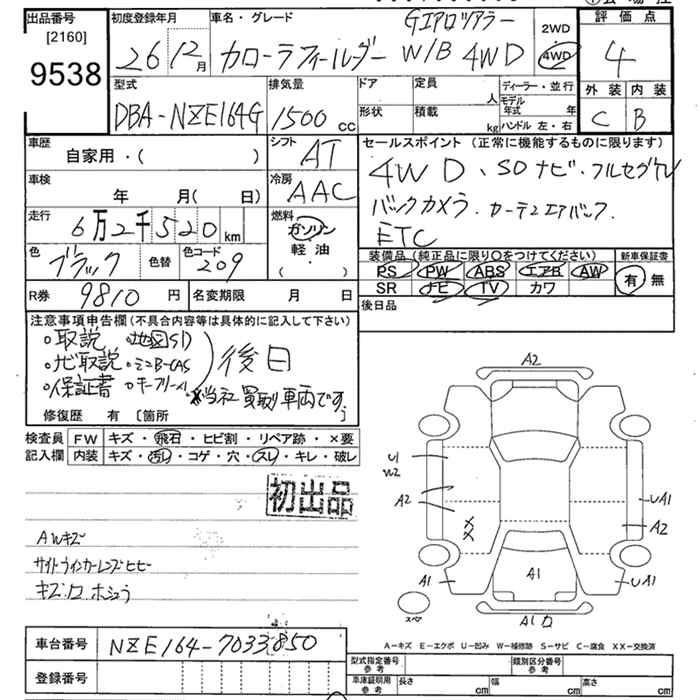 出品番号
[2160]
9538
初度登録年月
26 12月
車名・グレード
Gエアロツアラー
カローラフィールダー W/B 4WD
2WD
4WD
評価点
4
外装 内装
C B
型式
DBA-NZE164G
排気量
1500 cc
ドア
形状
定員
人
積載
kg
ディーラー・並行
モデル年式 年
ハンドル 左・右
車歴
自家用・( )
シフト
AT
車検
年 月( 日)
冷房
AAC
走行
6万2千520 km
燃料
ガソリン
軽油
・
色
ブラック
色替
色コード
209
R券
9810 円
名変期限 月 日
セールスポイント (正常に機能するものに限ります)
4WD、SDナビ・フルセグTV
バックカメラ.カーテンエアバック.
ETC
装備品 (純正品に限り○をつけてください)
PS PW ABS エアB AW
SR ナビ TV カワ
新車保証書
有 無
後日品
注意事項申告欄 (不具合内容等は具体的に記入して下さい)
○取説 ○地図SD
○ナビ取説 ○ミニB-CAS
○保証書 ○キーフリー×1
後日
※当社買取り車両です。
修復歴 有 〔箇所 〕
検査員記入欄
FW キズ・飛石・ヒビ割・リペア跡・×要
内装 キズ・汚レ・コゲ・穴・スレ・キレ・破レ
初出品
AWキズ
サイドウィンカーレンズヒビ
車台番号
NZE164-7033850
登録番号
A2
U1
W2
A2
XX
A1
A1
UA1
A2
UA1
スペア
A－キズ E－エクボ U－凹み W－補修跡 S－サビ C－腐食 XX－交換済
型式指定番号 参考
類別区分番号 参考
車庫証明用 参考
長さ cm
幅 cm
高さ cm